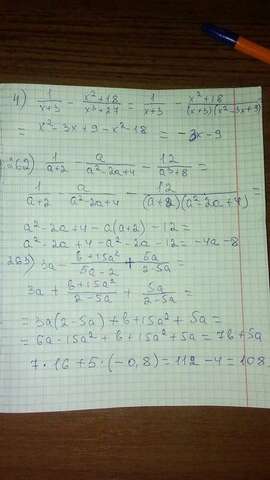 4) 1/(x+3) - (x²+18)/(x³+27) = 1/(x+3) - (x²+18)/((x+3)(x²-3x+9)) =
= x²-3x+9-x²-18 = -3x-9
262) 1/(a+2) - a/(a²-2a+4) - 12/(a³+8) =
1/(a+2) - a/(a²-2a+4) - 12/((a+2)(a²-2a+4)) =
a²-2a+4-a(a+2)-12=
a²-2a+4-a²-2a-12=-4a-8
263) 3a - (b+15a²)/(5a-2) + 5a/(2-5a) =
3a + (b+15a²)/(2-5a) + 5a/(2-5a) =
=3a(2-5a)+b+15a²+5a=
=6a-15a²+b+15a²+5a=7b+5a
7·16+5·(-0,8)=112-4=108